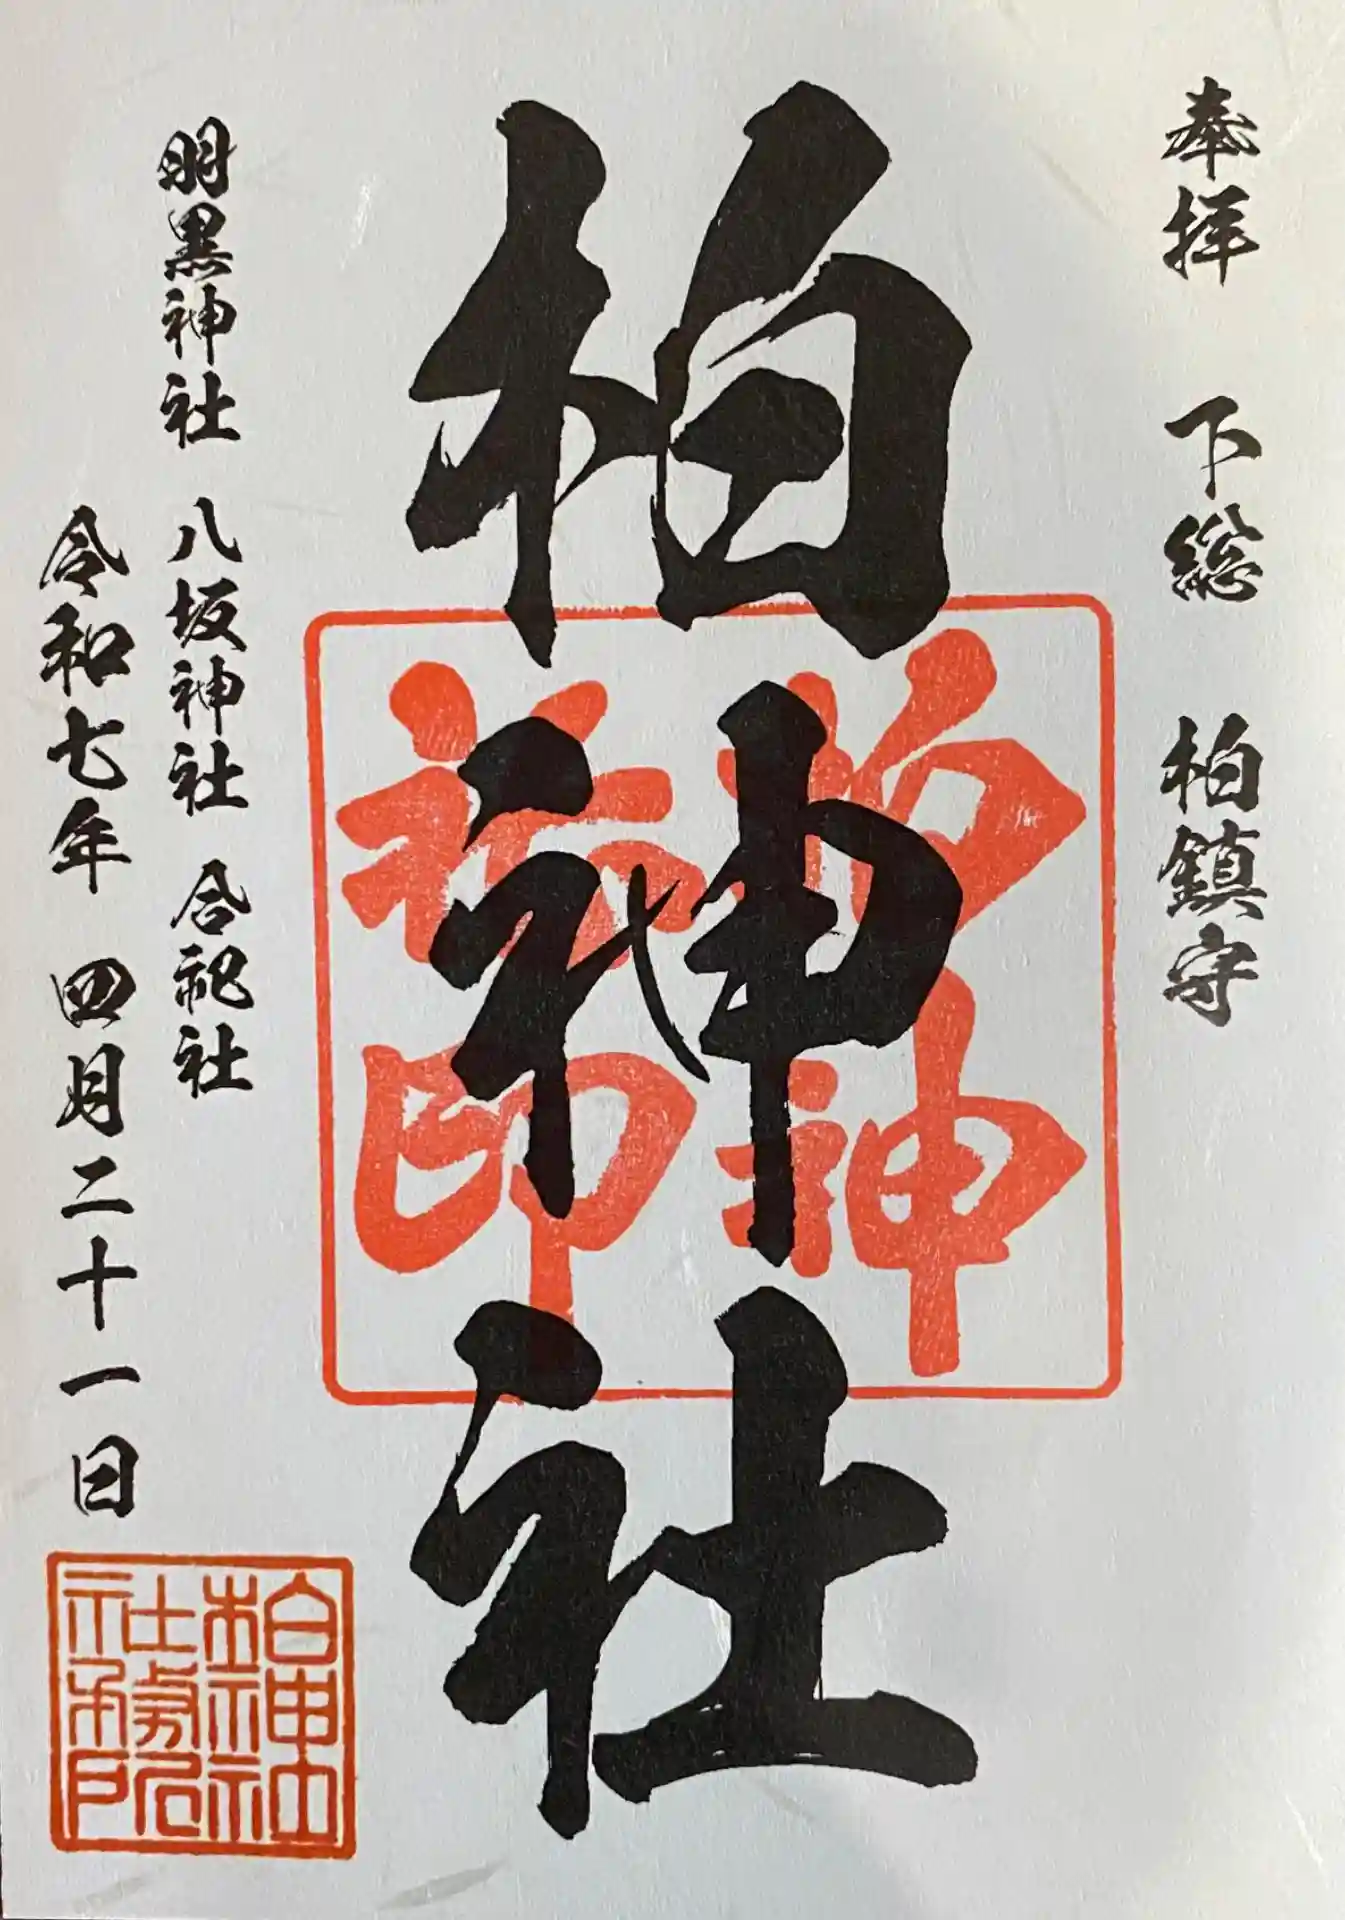 奉拝 下総 柏鎮守
柏神社
柏神
社印
羽黒神社 八坂神社 合祀社
令和七年 四月二十一日
柏神社
社務所